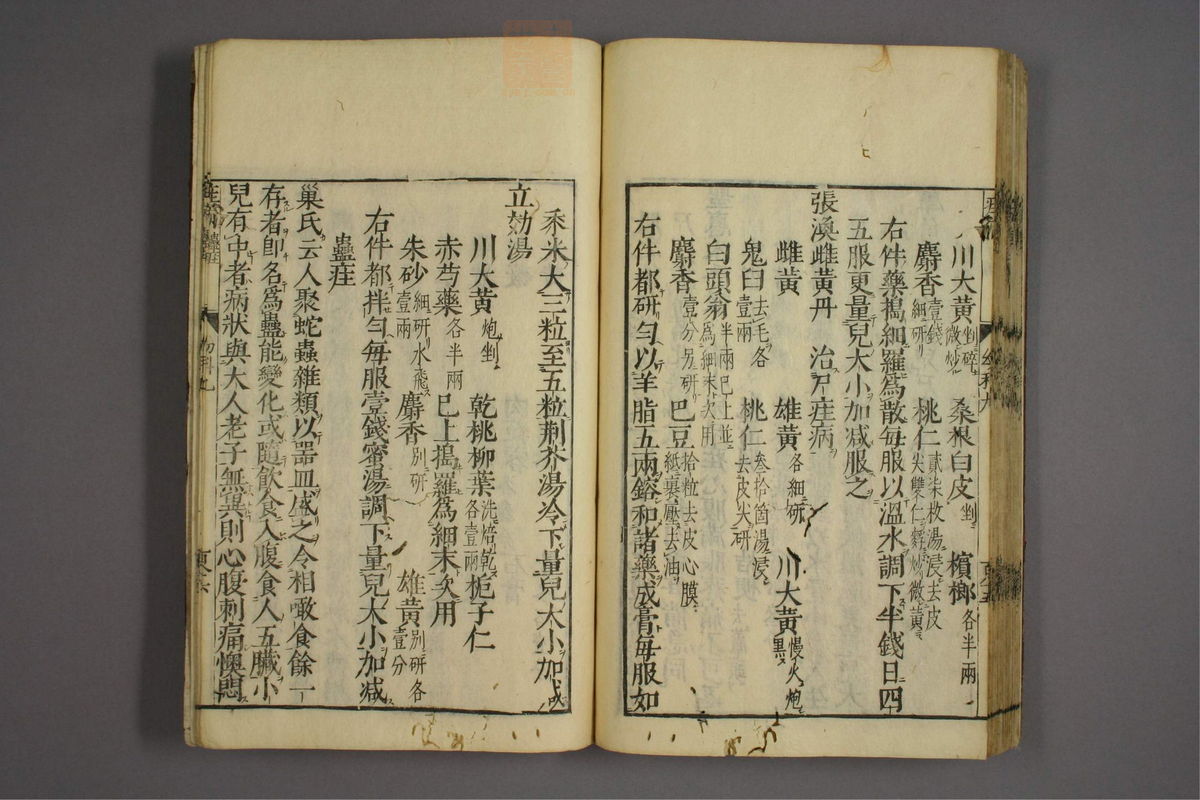 川大黃剉碎微炒 桑根白皮剉 檳榔各半兩
麝香壹錢細研 桃仁貳柒枚湯浸去皮尖雙仁麩炒微黃
右件藥搗細羅為散每服以溫水調下半錢日四
五服更量兒大小加減服之
張渙雌黃丹 治尸疰病
雌黃 雄黃各細研 川大黃慢火炮黑
鬼臼去毛各壹兩 桃仁叁拾箇湯浸去皮尖研
白頭翁半兩已上並為細末次用
麝香壹分另研 巴豆拾粒去皮心膜紙裹壓去油
右件都研勻以羊脂五兩鎔和諸藥成膏每服如
黍米大三粒至五粒荆芥湯冷下量兒大小加減
立効湯
川大黃炮剉 乾桃柳葉洗焙乾各壹兩 梔子仁
赤芍藥各半兩 已上搗羅為細末次用
朱砂細研水飛壹兩 麝香別研 雄黃別研各壹分
右件都拌勻每服壹錢蜜湯調下量兒大小加減
蠱疰
巢氏云人聚蛇蟲雜類以器皿盛之令相噉食餘一
存者即名爲蠱能變化或隨飲食入腹食人五臟小
兒有中者病狀與大人老子無異則心腹刺痛懊悶